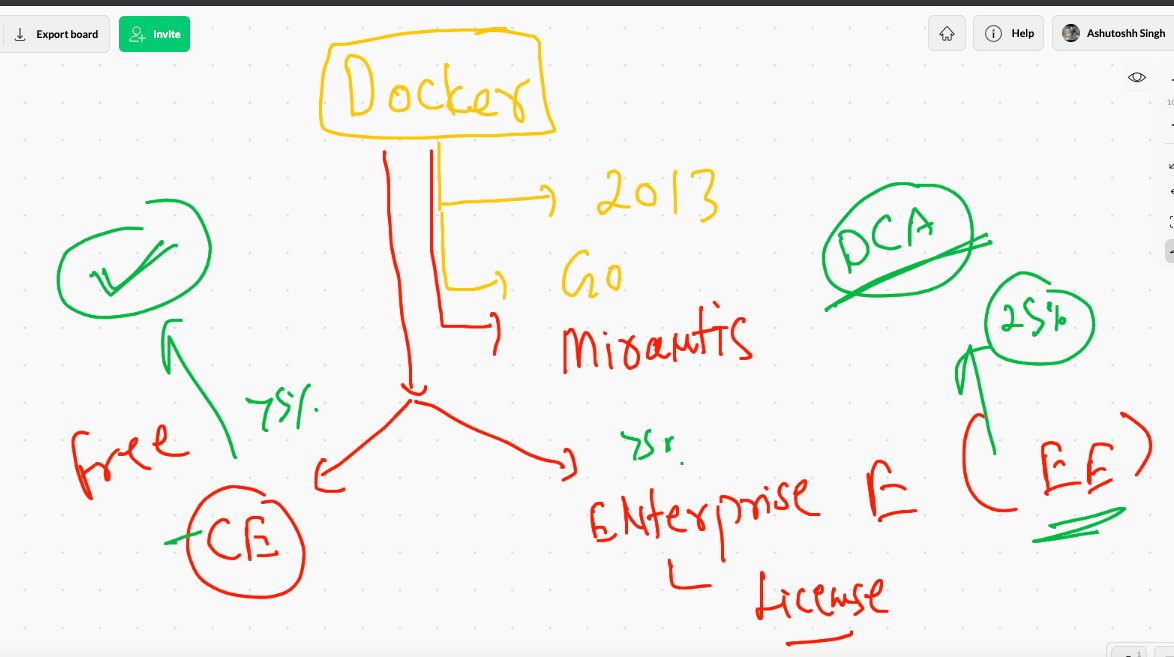 Export board
Invite
Help
Ashutoshh Singh
Docker
2013
DCA
Go
25%
Mirantis
75%.
75%.
Free
EE
Enterprise E
CE
License